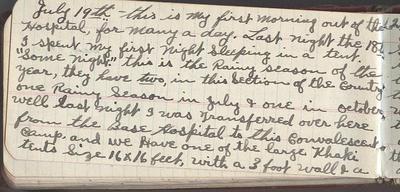 July 19th - this is my first morning out of the
Hospital, for many a day. Last night the 18th
I spent my first Night Sleeping in a tent.
"Some Night." this is the Rainy season of the
Year, they have two, in this section of the Country
one Rainy Season in July & one in October,
well Last night I was Transferred over here
from the Base Hospital to this Convalescent
Camp. and we Have one of the large Khaki
tents Size 16x16 feet, with a 3 foot wall & a